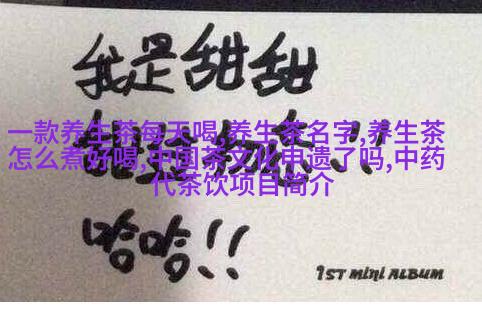 我是甜甜
一款养生茶每天喝,养生茶名字,养生茶
怎么煮好喝,中国茶文化申遗了吗,中药
代茶饮项目简介
哈哈!!
1ST MINI ALBUM